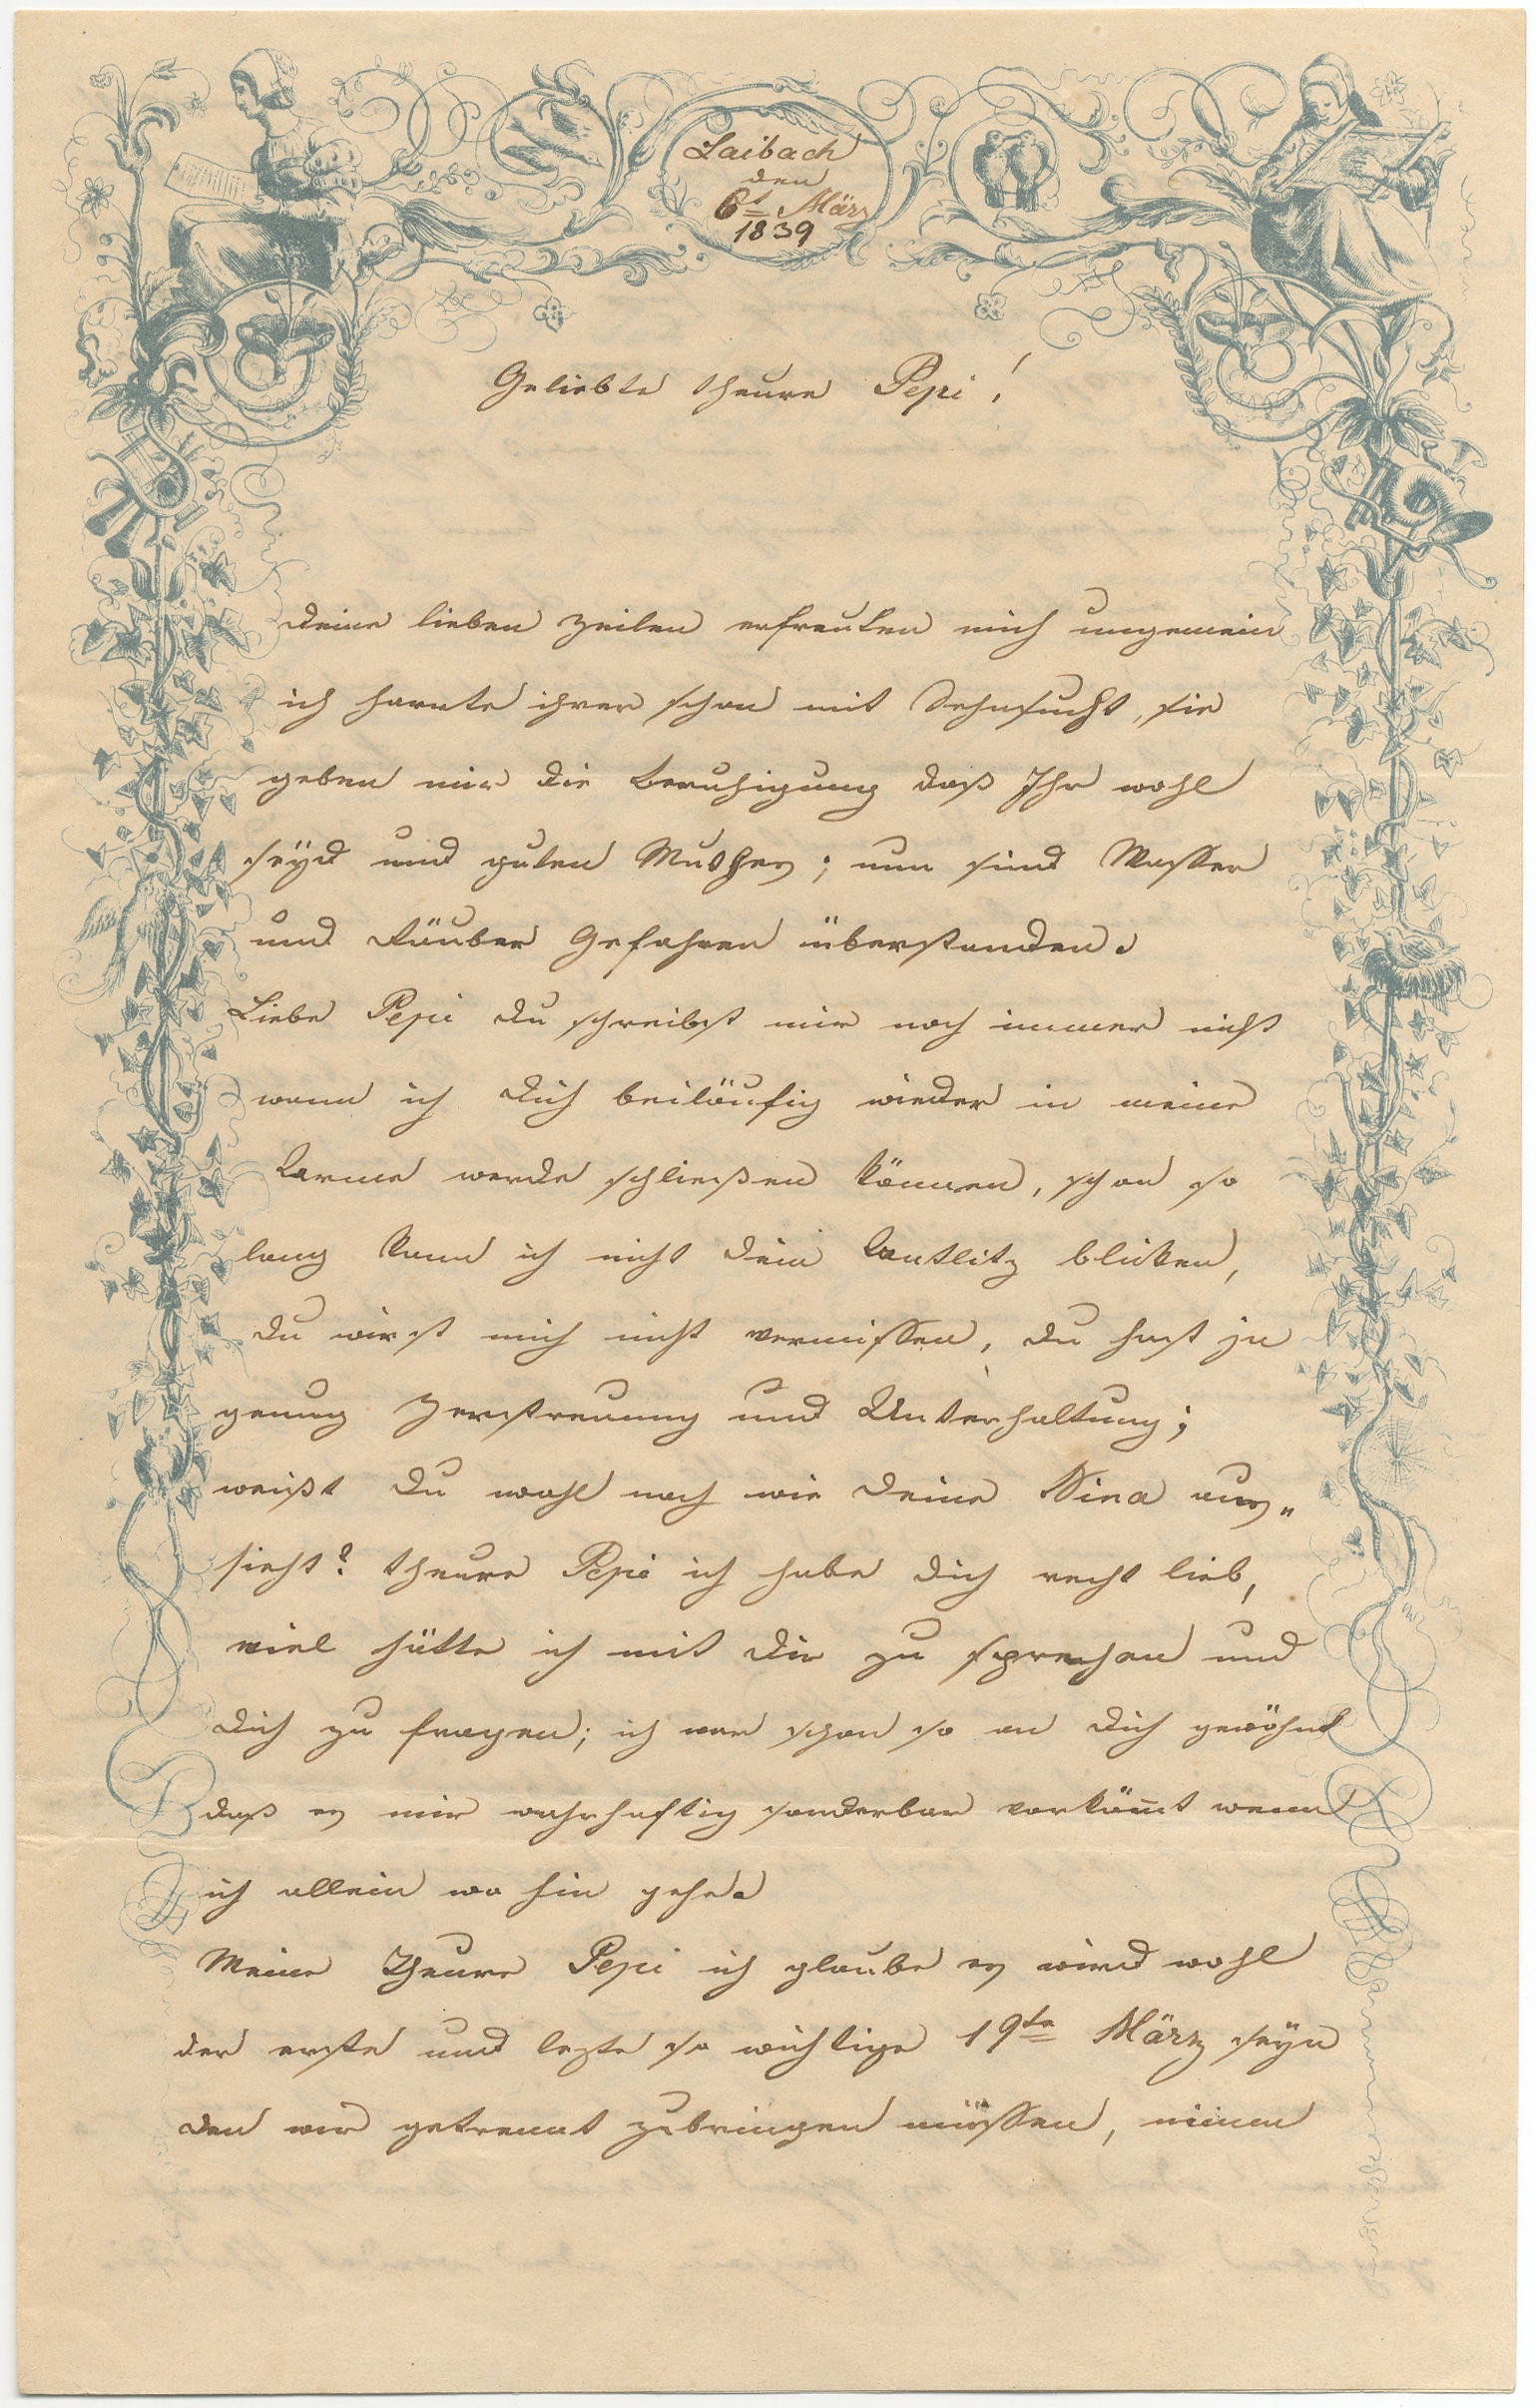 Laibach
den
6t März
1839
Geliebte theure Pepi!
Deine lieben Zeilen erfreuten mich ungemein
ich harrte ihrer schon mit Sehnsucht, sie
geben mir die Beruhigung daß Ihr wohl
seyd und guten Muthes; nun sind Wasser
und Räuber Gefahren überstanden.
Liebe Pepi du schreibst mir noch immer nicht
wann ich dich beiläufig wieder in meine
Arme werde schließen können, schon so
lang kann ich nicht dein Antlitz blicken,
du wirst mich nicht vermissen, du hast ja
genug Zerstreuung und Unterhaltung;
weißt du wohl noch wie deine Nina aus„
sieht? theure Pepi ich habe dich recht lieb,
viel hätte ich mit dir zu sprechen und
dich zu fragen; ich war schon so an dich gewöhnt
daß es mir wahrhaftig sonderbar vorkömt wenn
ich allein wo hin gehe.
Meine Theure Pepi ich glaube es wird wohl
der erste und lezte so wichtige 19te März seyn
den wir getrennt zubringen müssen, nimm